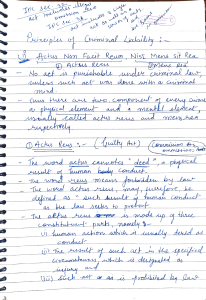 Principles of Criminal Liability :-
Actus Non Facit Reum, Nisi Mens Sit Rea
① Actus Reus
- No act is punishable under criminal law,
unless such act was done with a criminal
mind.
- Thus there are two component of every crime
a physical element and a mental element,
usually called actus reus and mens rea
respectively.
① Actus Reus :- (Guilty Act)
- The word actus connotes 'deed', a physical
result of human conduct.
- The word reus means forbidden by law
- The word actus reus, may, therefore be
defined as "such result of human conduct
as the law seeks to prevent.
- The actus reus is made up of three
constituent parts, namely :-
(i) human action which is usually termed as
conduct
(ii) The result of such act in the specified
circumstances which is designated as
injury and
(iii) such act as is prohibited by law